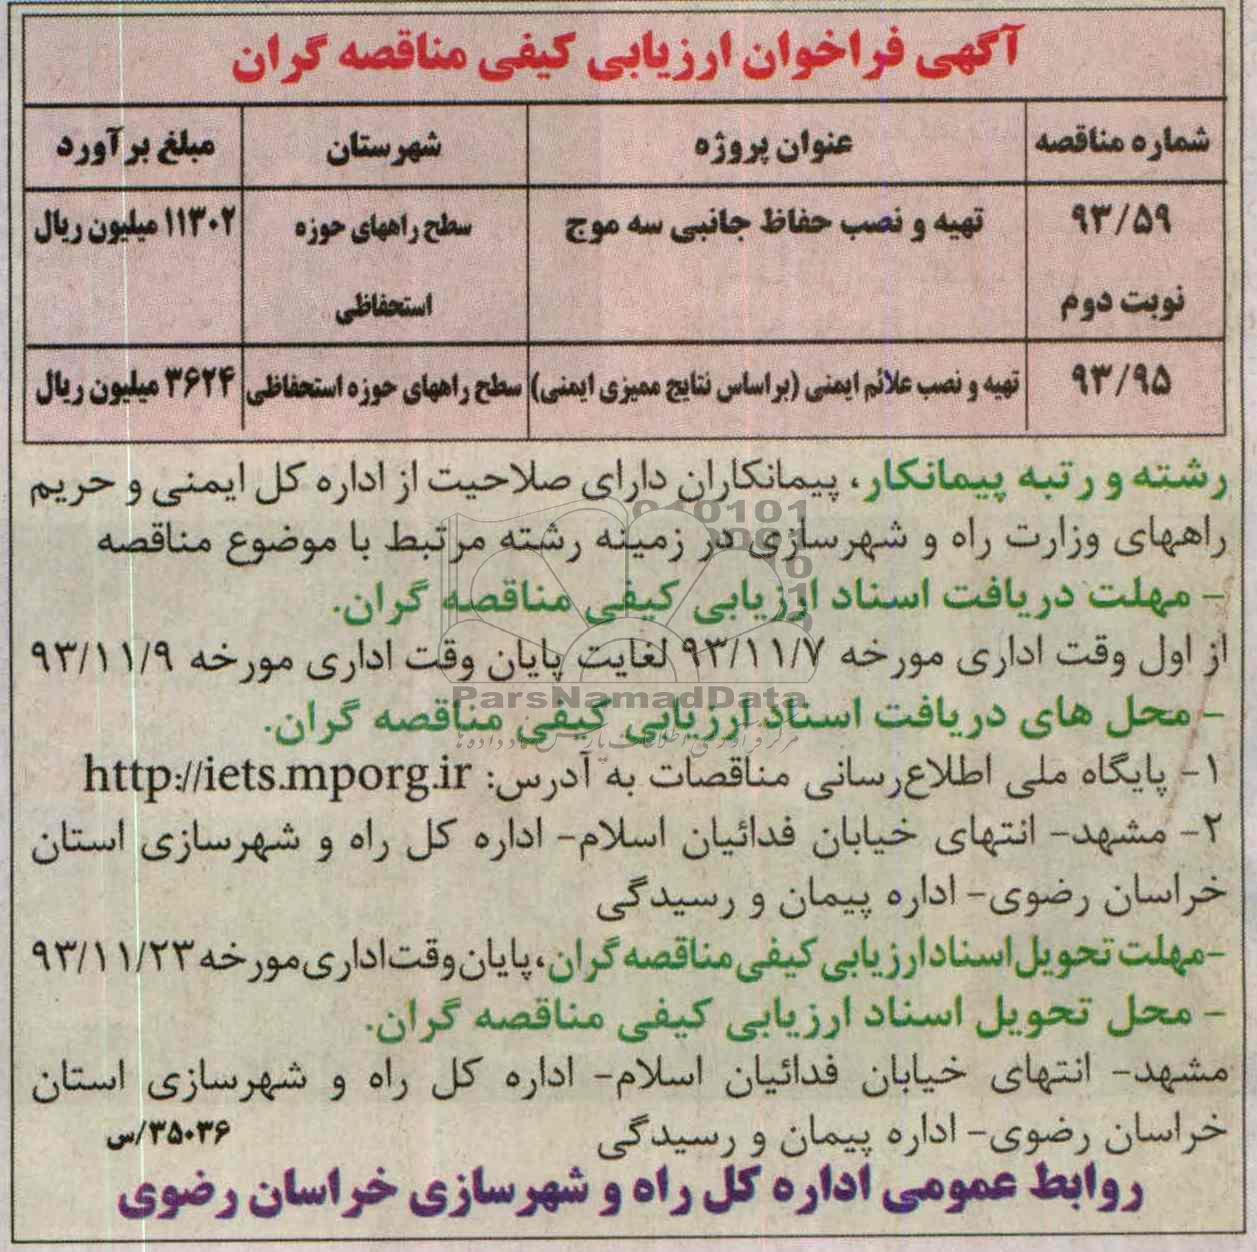 آگهی فراخوان ارزیابی کیفی مناقصه گران
شماره مناقصه عنوان پروژه شهرستان مبلغ برآورد
۹۳/۵۹ تهیه و نصب حفاظ جانبی سه موج سطح راههای حوزه ۱۱۳۰۲ میلیون ریال
نوبت دوم استحفاظی
۹۳/۹۵ تهیه و نصب علائم ایمنی (براساس نتایج ممیزی ایمنی) سطح راههای حوزه استحفاظی ۳۶۲۴ میلیون ریال
رشته و رتبه پیمانکار، پیمانکاران دارای صلاحیت از اداره کل ایمنی و حریم
راههای وزارت راه و شهرسازی در زمینه رشته مرتبط با موضوع مناقصه
- مهلت دریافت اسناد ارزیابی کیفی مناقصه گران.
از اول وقت اداری مورخه ۹۳/۱۱/۷ لغایت پایان وقت اداری مورخه ۹۳/۱۱/۹
ParsNamadData
- محل های دریافت اسناد ارزیابی کیفی مناقصه گران.
۱- پایگاه ملی اطلاع‌رسانی مناقصات به آدرس: http://iets.mporg.ir
۲- مشهد- انتهای خیابان فدائیان اسلام- اداره کل راه و شهرسازی استان
خراسان رضوی- اداره پیمان و رسیدگی
-مهلت تحویل اسناد ارزیابی کیفی مناقصه گران، پایان وقت اداری مورخه ۹۳/۱۱/۲۳
- محل تحویل اسناد ارزیابی کیفی مناقصه گران.
مشهد- انتهای خیابان فدائیان اسلام- اداره کل راه و شهرسازی استان
خراسان رضوی- اداره پیمان و رسیدگی
۳۵۰۳۶/س
روابط عمومی اداره کل راه و شهرسازی خراسان رضوی